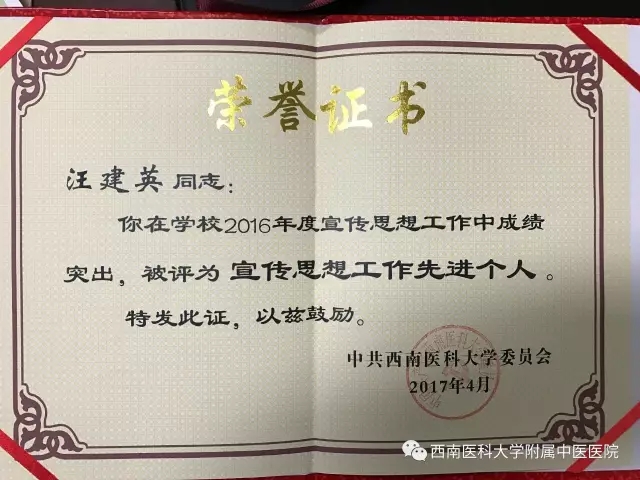 荣誉证书
汪建英同志：
你在学校2016年度宣传思想工作中成绩
突出，被评为 宣传思想工作先进个人。
特发此证，以兹鼓励。
中共西南医科大学委员会
2017年4月
西南医科大学附属中医医院